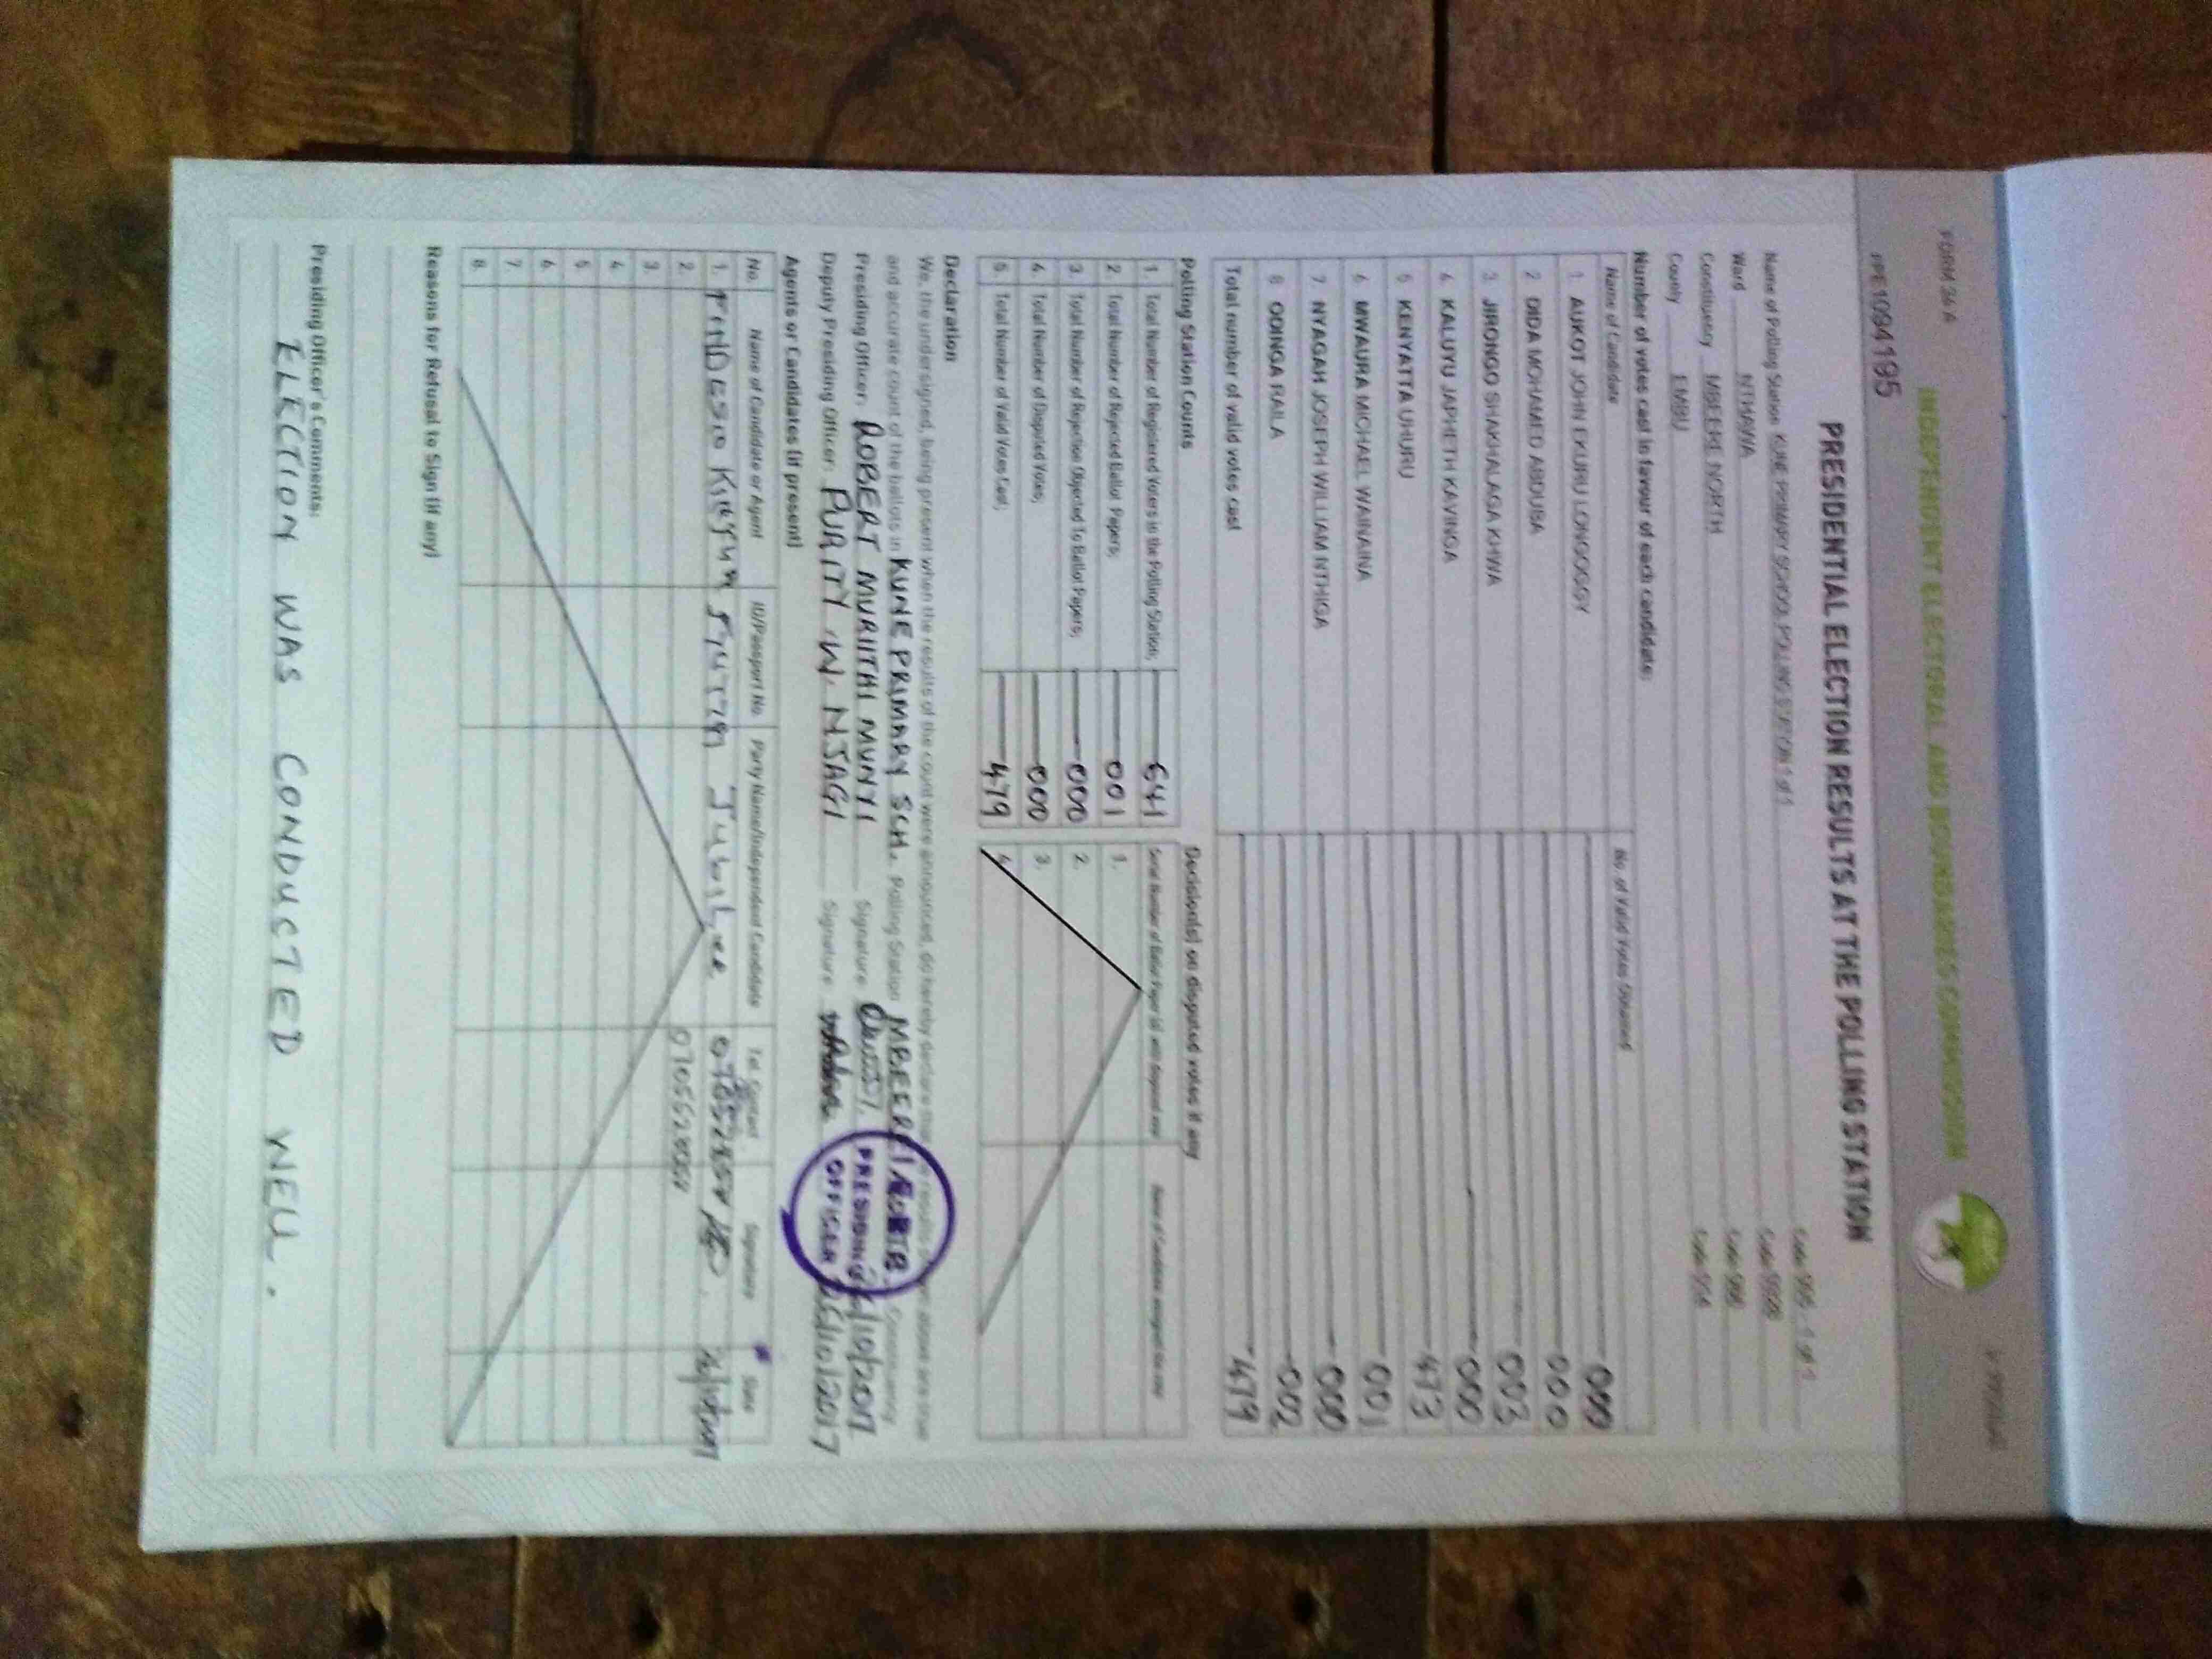 FORM 34 A
INDEPENDENT ELECTORAL AND BOUNDARIES COMMISSION
PPE 1094195
PRESIDENTIAL ELECTION RESULTS AT THE POLLING STATION
Name of Polling Station KUNE PRIMARY SCHOOL POLLING STATION 1 of 1 Code
Ward NTHAWA Code
Constituency MBEERE NORTH Code
County EMBU Code
Number of votes cast in favour of each candidate:
Name of Candidate No. of Valid Votes Obtained
1 AUKOT JOHN EKURU LONGOGGY 000
2 DIDA MOHAMED ABDUBA 000
3 JIRONGO SHAKHALAGA KHWA 003
4 KALUYU JAPHETH KAVINGA 000
5 KENYATTA UHURU 473
6 MWAURA MICHAEL WAINAINA 001
7 NYAGAH JOSEPH WILLIAM NTHIGA 000
8 ODINGA RAILA 002
Total number of valid votes cast 479
Polling Station Counts
1. Total Number of Registered Voters in the Polling Station; 641
2. Total Number of Rejected Ballot Papers; 001
3. Total Number of Rejection Objected To Ballot Papers; 000
4. Total Number of Disputed Votes; 000
5. Total Number of Valid Votes Cast; 479
Decision(s) on disputed votes if any
1.
2.
3.
4.
Declaration
We, the undersigned, being present when the results of the count were announced, do hereby declare that the results above are true
and accurate count of the ballots in KUNE PRIMARY SCH. Polling Station MBEERE Constituency
Presiding Officer: ROBERT MURIITHI MUNYI Signature 26/10/2017
Deputy Presiding Officer: PURITY W. NJAGI Signature 26/10/2017
IEBC
PRESIDING
OFFICER
Agents or Candidates (if present)
No. Name of Candidate or Agent ID/Passport No. Party Name/Independent Candidate Tel. Contact Signature Date
1. Jubilee
2. 0705528069
3.
4.
5.
6.
7.
8.
Reasons for Refusal to Sign (if any)
Presiding Officer's Comments:
ELECTION WAS CONDUCTED WELL.